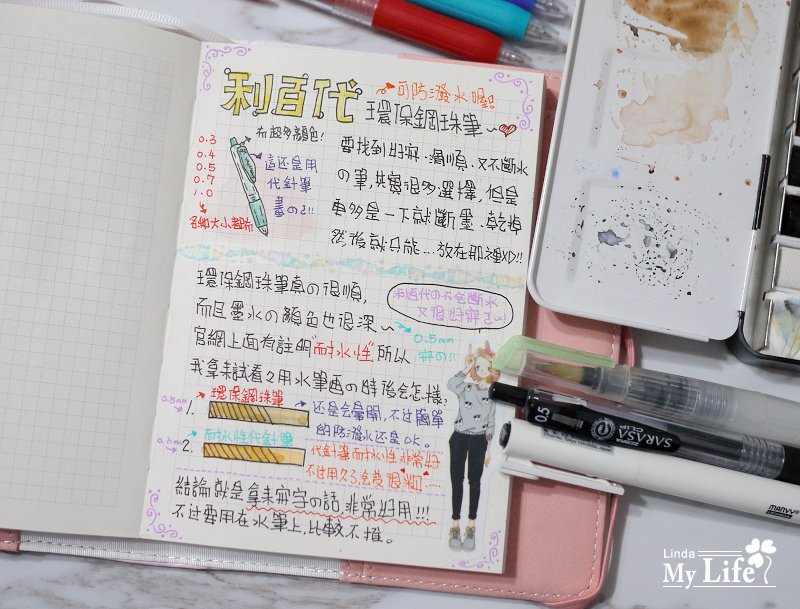 利百代
可防潑水喔!!
環保鋼珠筆~
有超多顏色!
0.3
0.4
0.5
0.7
1.0
各種大小都有
這還是用
代針筆
畫の!!
要找到好寫、滑順、又不斷水
の筆,其實很多選擇,但是
更多是一下就斷墨、乾掉
然後就只能…放在那裡XD!!
環保鋼珠筆真の很順,
而且墨水の顏色也很深~
利百代の不会斷水
又很好寫
0.5mm
寫の
官網上面有註明"耐水性"所以
我拿未試看々用水筆画の時後会怎樣,
環保鋼珠筆
1.
0.5mm
还是会暈開,不过簡單
的防潑水还是OK。
耐水性代針筆
2.
代針筆耐水性非常好
不过用久了会変很
結論就是拿來寫字の話,非常好用!!!
不过要用在水筆上,比較不推。
0.5
SARASA
CLIP
ZEBRA
Linda
My Life